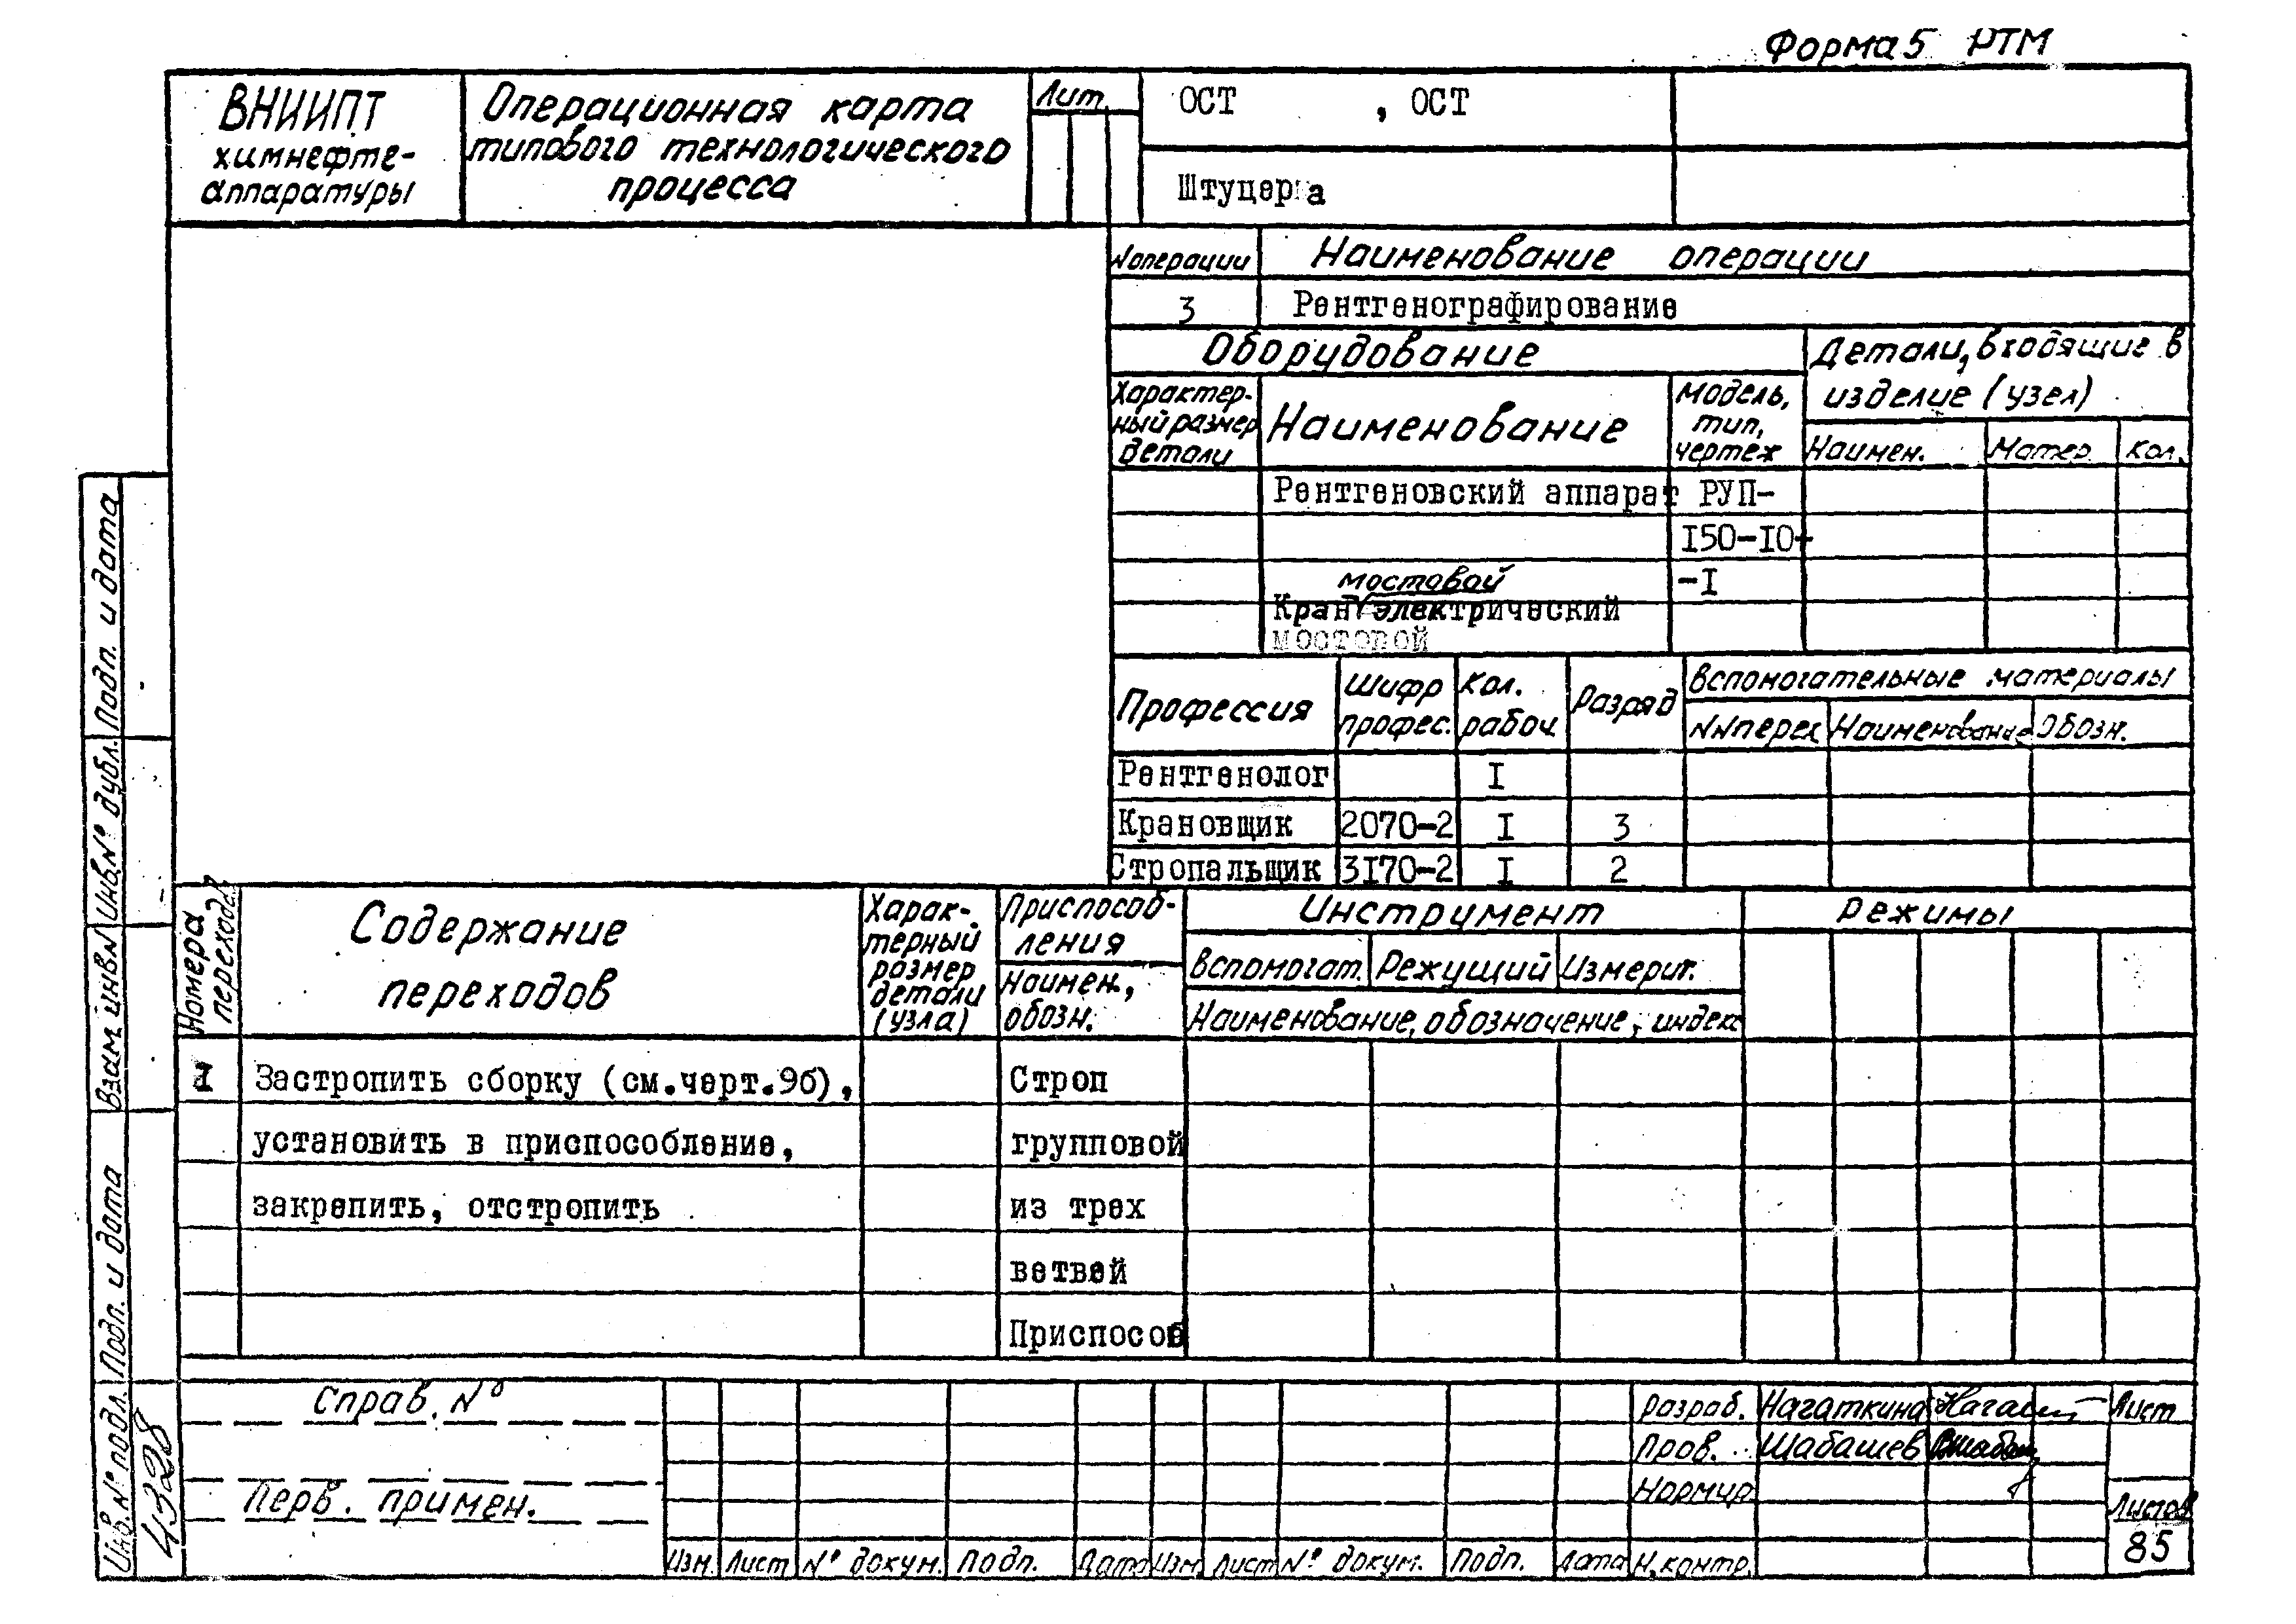 Форма 5 РТМ
ВНИИПТ
химнефте-
аппаратуры
Операционная карта
типового технологического
процесса
Лит.
ОСТ , ОСТ
Штуцера
№операции Наименование операции
3 Рентгенографирование
Оборудование
Детали, входящие в
изделие (узел)
Характер-
ный размер
детали
Наименование
Модель,
тип,
чертеж
Наимен. Матер. Кол.
Рентгеновский аппарат РУП-
I50-I0-
-I
мостовой
Кран электрический
мостовой
Профессия
Шифр
профес.
Кол.
рабоч.
Разряд
Вспомогательные материалы
№№перех Наименование Обозн.
Рентгенолог I
Крановщик 2070-2 I 3
Стропальщик 3I70-2 I 2
Номера
переходов
Содержание
переходов
Харак-
терный
размер
детали
(узла)
Приспособ-
ления
Наимен.,
обозн.
Инструмент
Вспомогат. Режущий Измерит.
Наименование, обозначение, индекс
Режимы
I Застропить сборку (см.черт.9б), Строп
установить в приспособление, групповой
закрепить, отстропить из трех
ветвей
Приспособ
Справ. №
Перв. примен.
Изм. Лист № докум. Подп. Дата Изм. Лист № докум. Подп. Дата
Разраб. Нагаткина
Пров. Шабашев
Нормир.
Н.контр.
Лист
Листов
85
Подп. и дата
Инв.№ дубл.
Взам.инв.№
Подп. и дата
Инв.№ подл.
4328